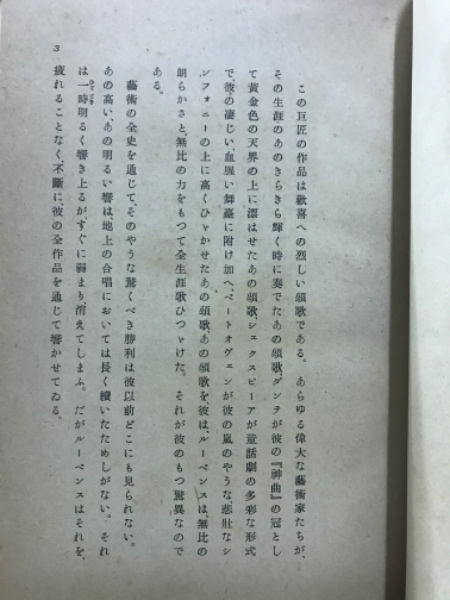 この巨匠の作品は歡喜への烈しい頌歌である。あらゆる偉大な藝術家たちが、
その生涯のあのきらきら輝く時に奏でたあの頌歌、ダンテが彼の『神曲』の冠とし
て黄金色の天界の上に漂はせたあの頌歌、シェクスピーアが童話劇の多彩な形式
で、彼の凄じい、血腥い舞臺に附け加へ、ベートオヴェンが彼の嵐のやうな、悲壯なシ
ンフォニーの上に高くひゞかせたあの頌歌、あの頌歌を彼は、ルーベンスは、無比の
朗らかさと、無比の力をもつて全生涯歌ひつゞけた。それが彼のもつ驚異なので
ある。
藝術の全史を通じて、そのやうな驚くべき勝利は彼以前どこにも見られない。
あの高い、あの明るい響は、地上の合唱においては長く續いたためしがない。それ
は一時明るく響き上るが、すぐに弱まり、消えてしまふ。だがルーベンスはそれを、
疲れることなく、不斷に、彼の全作品を通じて響かせてゐる。
3